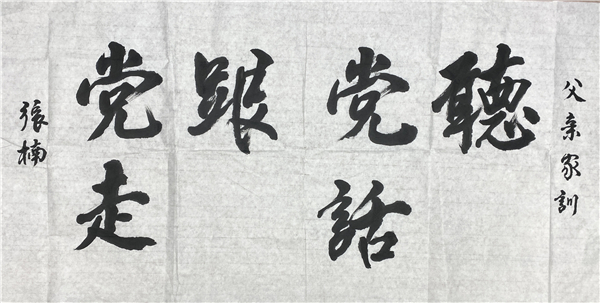 父亲家訓
聽
党話
跟
党走
張楠